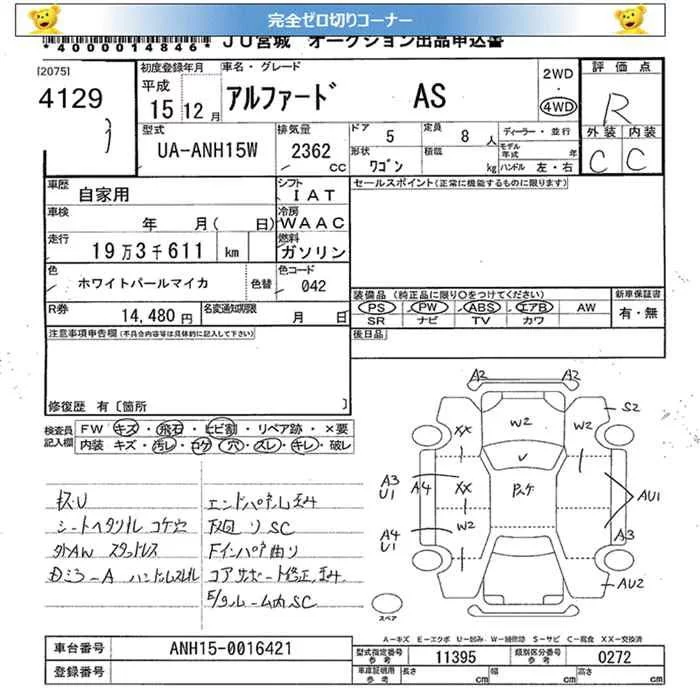 完全ゼロ切りコーナー
*4000014846* JU宮城 オークション出品申込書
[2075]
4129
初度登録年月
平成
15 12月
車名・グレード
アルファード AS
2WD
・
4WD
評価点
R
外装 内装
C C
型式
UA-ANH15W
排気量
2362 cc
ドア 5 定員 8 人
形状 ワゴン 積載 kg
ディーラー・並行
モデル年式 年
ハンドル 左・右
車歴 自家用
シフト IAT
セールスポイント(正常に機能するものに限ります)
車検 年 月( 日)
冷房 WAAC
走行 19万3千611 km
燃料 ガソリン
色 ホワイトパールマイカ 色替
色コード 042
装備品(純正品に限り○をつけてください)
新車保証書
PS PW ABS エアB AW
有・無
SR ナビ TV カワ
R券 14,480円
名変通知期限 月 日
後日品
注意事項申告欄(不具合内容等は具体的に記入して下さい)
修復歴 有〔箇所 〕
検査員記入欄
FW キズ・飛石・ヒビ割・リペア跡・×要
内装 キズ・汚レ・コゲ・穴・スレ・キレ・破レ
キズ・U
シートヘタリスレ コゲ穴
外AW スタッドレス
ハンドルスレ
エンドパネル歪み
SC
Fインパネ曲り
コアサポート修正、歪み
E/gルーム内SC
A2 A2
S2
XX W2 W2
V
A3 U1 A4 XX
AU1
A4 U1 W2
A3
AU2
スペア
A-キズ E-エクボ U-凹み W-補修跡 S-サビ C-腐食 XX-交換済
車台番号 ANH15-0016421
型式指定番号 参考 11395
類別区分番号 参考 0272
登録番号
車庫証明用 参考 長さ cm 幅 cm 高さ cm